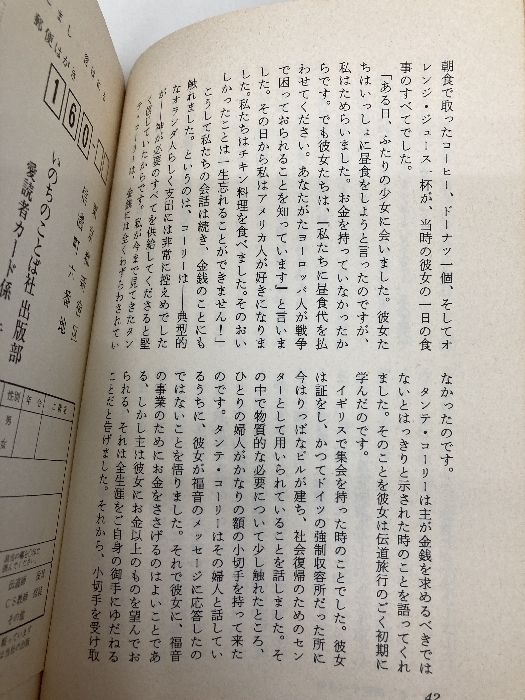 朝食で取ったコーヒー、ドーナッツ一個、そしてオ
レンジ・ジュース一杯が、当時の彼女の一日の食
事のすべてでした。
「ある日、ふたりの少女に会いました。彼女た
ちはいっしょに昼食をしようと言ったのですが、
私はためらいました。お金を持っていなかったか
らです。でも彼女たちは、『私たちに昼食代を払
わせてください。あなたがたヨーロッパ人が戦争
で困っておられることを知っています』と言いま
した。その日から私はアメリカ人が好きになりま
した。私たちはチキン料理を食べました。そのおい
しかったことは一生忘れることができません！」
こうして私たちの会話は続き、金銭のことにも
触れました。というのは、コーリーは――典型的
なオランダ人らしく支出には非常に控えめでした
が――神が必要のすべてを供給してくださると堅
く信じていたからです。私が今まで見てきたタン
テ・コーリーは、金銭には全くわずらわされてい
なかったのです。
タンテ・コーリーは主が金銭を求めるべきでは
ないとはっきりと示された時のことを語ってくれ
ました。そのことを彼女は伝道旅行のごく初期に
学んだのです。
イギリスで集会を持った時のことでした。彼女
は証をし、かつてドイツの強制収容所だった所に
今はりっぱなビルが建ち、社会復帰のためのセン
ターとして用いられていることを話しました。そ
の中で物質的な必要について少し触れたところ、
ひとりの婦人がかなりの額の小切手を持って来た
のです。タンテ・コーリーはその婦人と話してい
るうちに、彼女が福音のメッセージに応答したの
ではないことを悟りました。それで彼女に、福音
の事業のためにお金をささげるのはよいことであ
る、しかし主は彼女にお金以上のものを望んでお
られる、それは全生涯をご自身の御手にゆだねる
ことだと告げました。それから、小切手を受け取
42
郵便はがき
160
いのちのことば社 出版部
愛読者カード係
性別
男
女